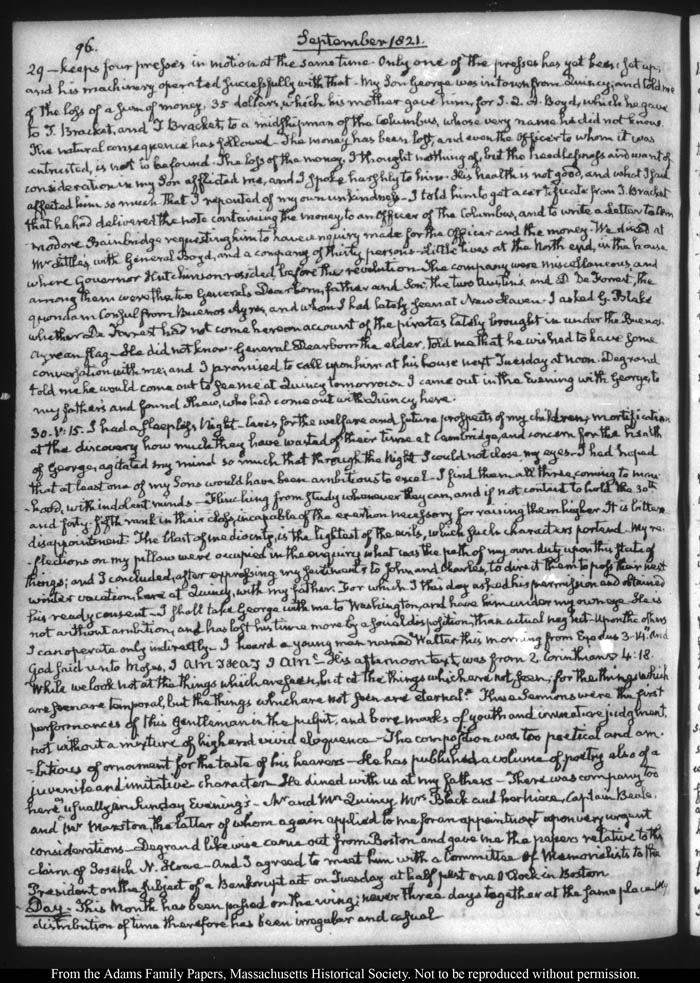 96.
September 1821.
29 — keeps four presses in motion at the same time. Only one of the presses has yet been set up,
and his machinery operated successfully with that — My Son George was in town from Quincy, and told me
of the loss of a sum of money, 35 dollars, which his mother gave him, for J. Q. A. Boyd, which he gave
to J. Bracket, and J Bracket, to a midshipman of the Columbus, whose very name he did not know.
The natural consequence has followed — The money has been lost, and even the officer to whom it was
entrusted, is not to be found. The loss of the money, I thought nothing of, but the heedlessness and want of
consideration in my Son afflicted me, and I spoke harshly to him — His health is not good, and what I said
affected him so much that I repented of my own unkindness — I told him to get a certificate from J. Bracket
that he had delivered the note containing the money to an Officer of the Columbus, and to write a Letter to Com-
modore Bainbridge requesting him to have enquiry made for the Officer and the money. We dined at
Mr Little's, with General Boyd, and a company of thirty persons — Little lives at the North end, in the house
where Governor Hutchinson resided before the revolution — The company were miscellaneous, and
among them were the two Generals Dearborn, father and Son, the two Austins, and D. De Forrest, the
quondam Consul from Buenos Ayres, and whom I had lately seen at New Haven. I asked G. Blake
whether De Forrest had not come here on account of the pirates lately brought in under the Buenos
Ayrean flag — He did not know — General Dearborn the elder, told me that he wished to have some
conversation with me; and I promised to call upon him at his house next Tuesday at noon. Degrand
told me he would come out to see me at Quincy tomorrow. I came out in the Evening with George, to
my father's and found Shaw, who had come out with Quincy here.
30. V: 15. I had a sleepless Night — Cares for the welfare and future prospects of my children, mortification
at the discovery how much they have wasted of their time at Cambridge, and concern for the health
of George, agitated my mind so much that through the Night I could not close my eyes. I had hoped
that at least one of my Sons would have been ambitious to excel — I find them all three coming to man-
hood, with indolent minds — Flinching from study whenever they can, and if not content to hold the 30th
and forty-fifth rank in their class, incapable of the exertion necessary for raising them higher. It is bitter
disappointment. The blast of mediocrity, is the lightest of the evils, which such characters portend. My re-
flections on my pillow were occupied in the enquiry what was the path of my own duty upon this state of
things; and I concluded, after expressing my sentiments to John and Charles, to direct them to pass their next
winter vacation, here at Quincy, with my father. For which I this day asked his permission and obtained
his ready consent — I shall take George with me to Washington, and have him under my own eye. He is
not without ambition, and has lost his time more by a social disposition, than actual neglect. Upon the others
I can operate only indirectly. I heard a young man named Walter this morning from Exodus 3. 14. And
God said unto Moses, I AM THAT I AM — His afternoon text, was from 2. Corinthians 4: 18.
"While we look not at the things which are seen, but at the things which are not seen, for the things which
are seen are temporal, but the things which are not seen are eternal." These Sermons were the first
performances of this Gentleman in the pulpit, and bore marks of youth and immature judgment,
not without a mixture of high and vivid eloquence — The composition was too poetical and am-
bitious of ornament for the taste of his hearers — He has published a volume of poetry also of a
juvenile and imitative character. He dined with us at my father's — There was company too
here as usually on Sunday Evenings — Mr and Mrs Quincy, Mrs Black and her Niece, Captain Beale.
and Mr Marston, the latter of whom again applied to me for an appointment upon very urgent
considerations — Degrand likewise came out from Boston and gave me the papers relative to the
claim of Joseph N. Howe — And I agreed to meet him with a Committee of Memorialists to the
President on the subject of a Bankrupt act on Tuesday at half past one O'Clock in Boston
Day. This Month has been passed on the wing; never three days together at the same place. My
distribution of time therefore has been irregular and casual
From the Adams Family Papers, Massachusetts Historical Society. Not to be reproduced without permission.